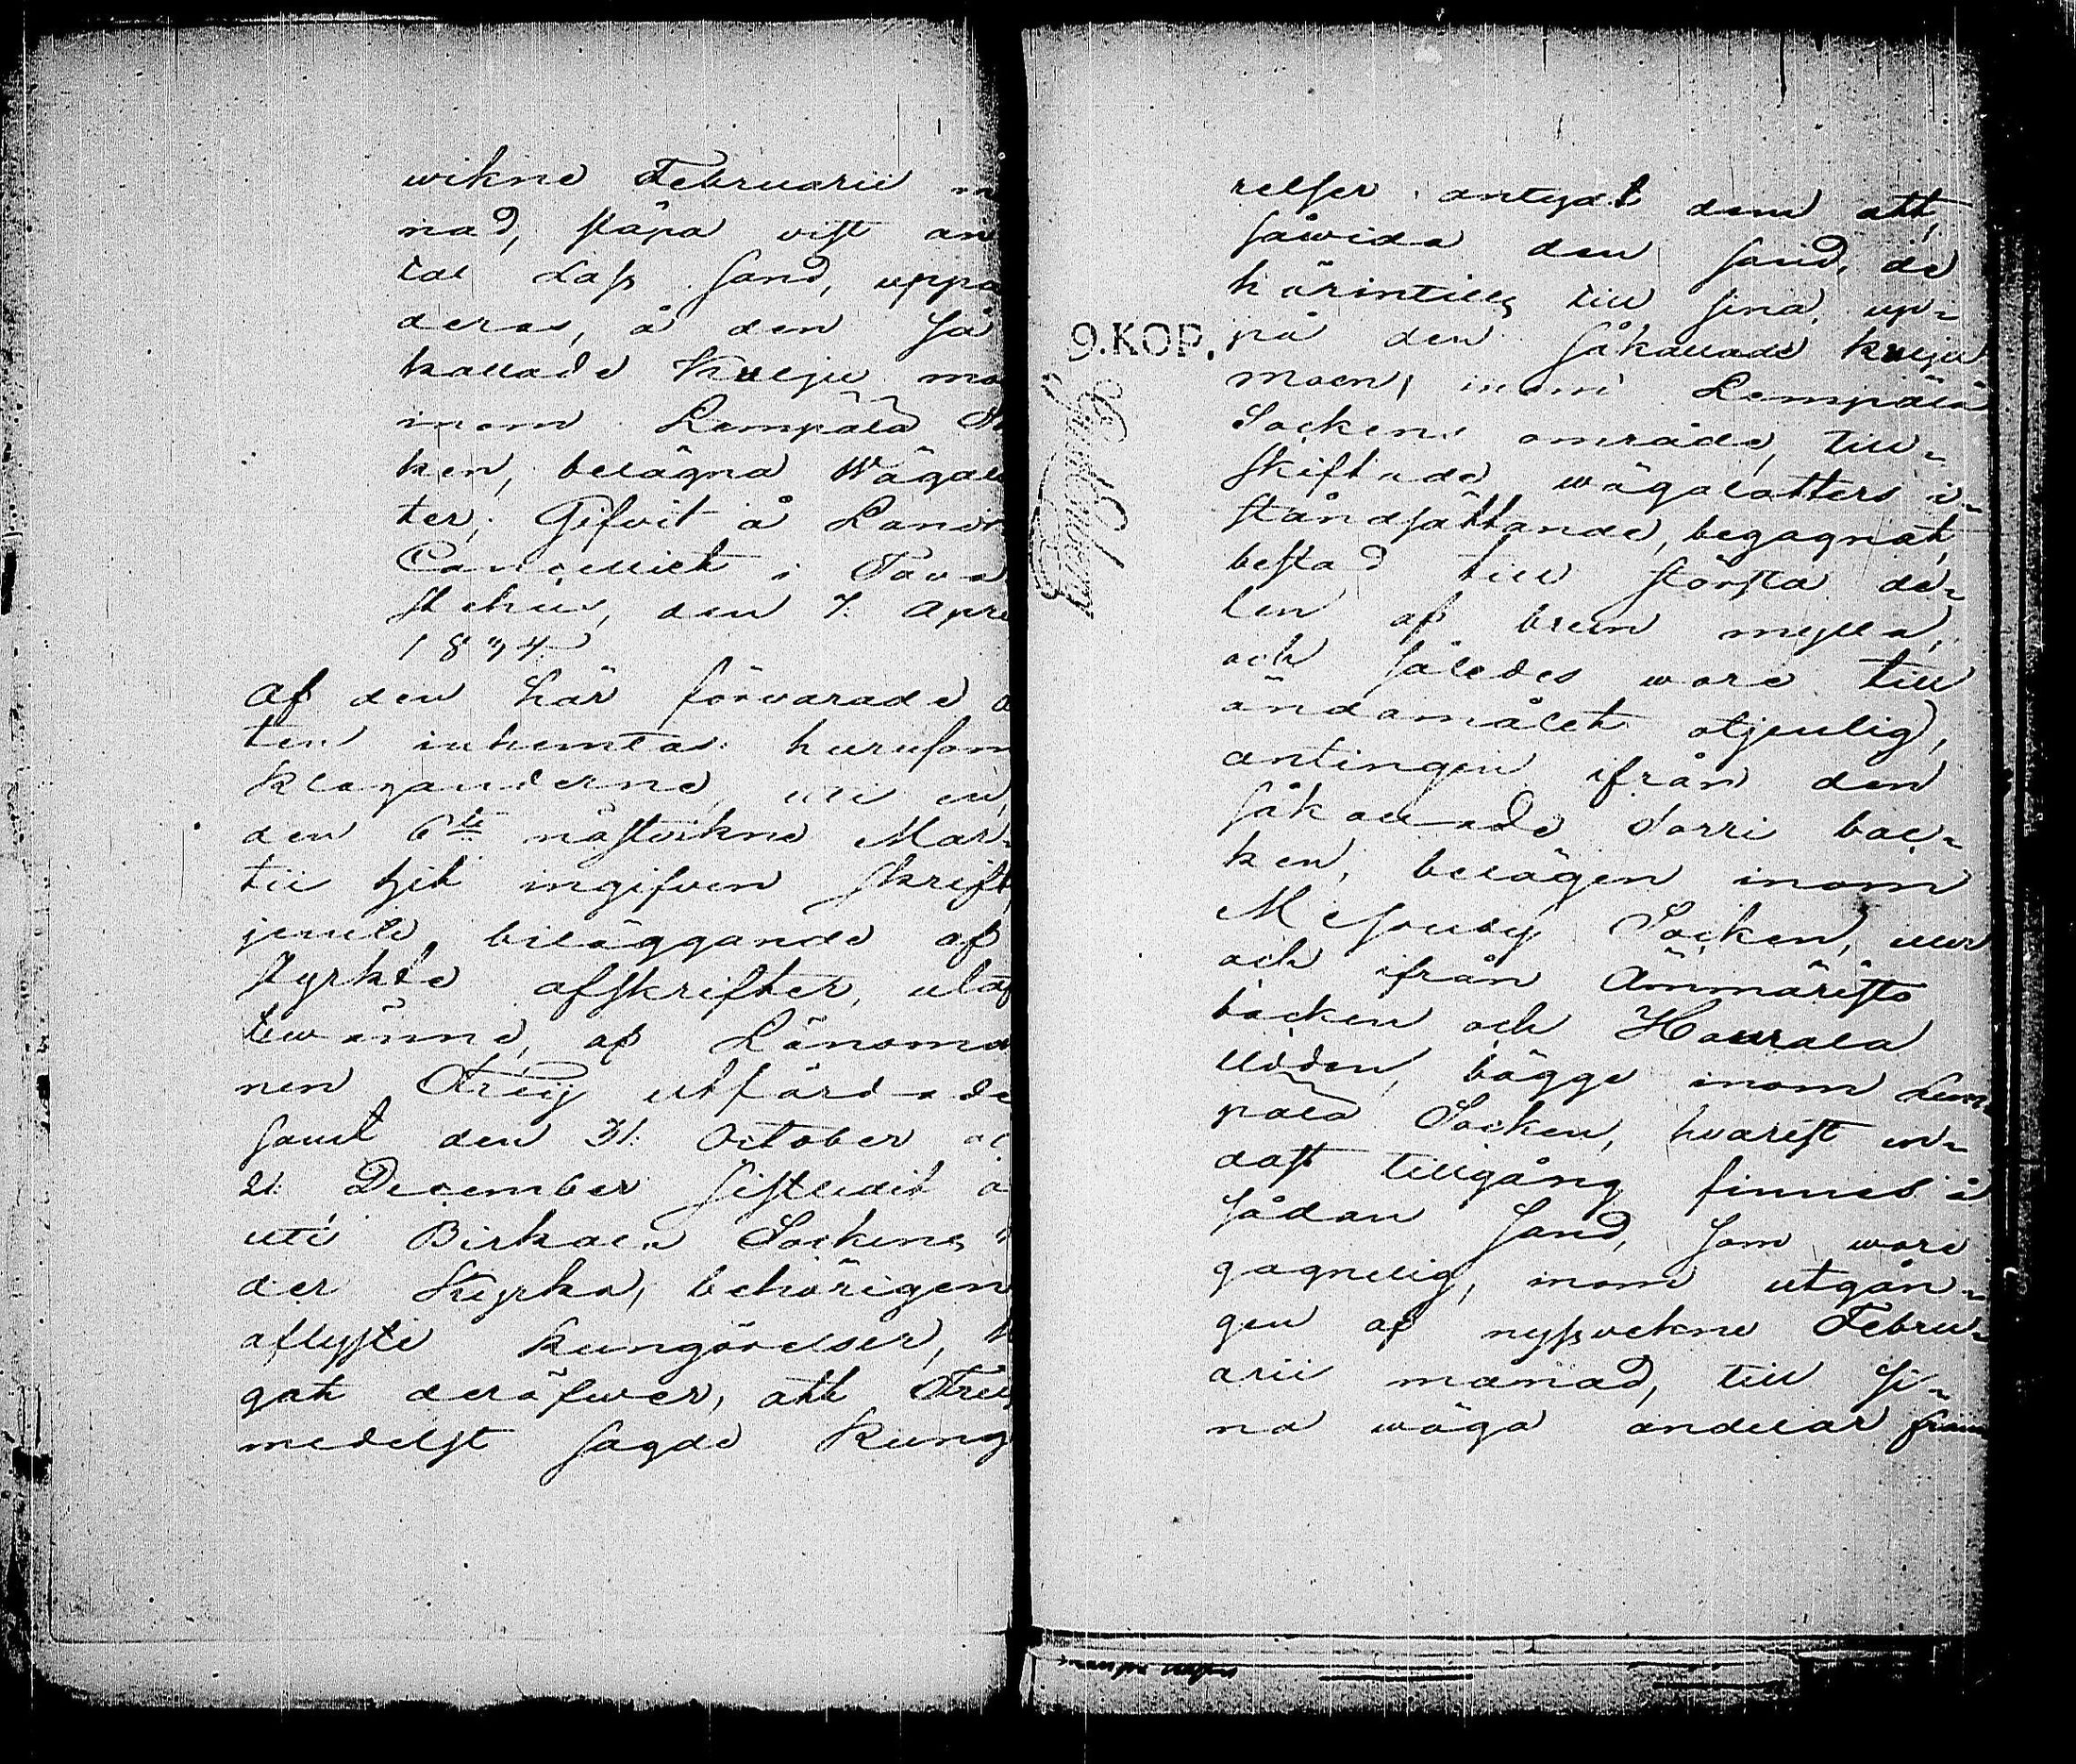 wikne Februarii m
nad, släpa vist an
tal Lass sand, uppå
deras, å den så
kallade Kulju mo
inom Lempälä So
ken, belägna Wägalå
ter; Gifvit å Lands
Cancelliet i Tava
stehus, den 7. Apri
1834.
Af den här förvarade a
ten inhemtas hurusom
Klaganderne, uti en,
den 6te nästvikne Mar-
tii hit ingifven skrift
jemte biläggande af
styrkte afskrifter, utaf
tvänne, af Länsma
nen Freij utfärdade
samt den 31. October oc
21. December sistledit å
uti Birkala Sockens
der Kyrka, behörigen
aflyste kungörelser, k
gat deröfwer, att Freij
medelst sagde Kung
relser antydt dem att,
såwida den sand, de
härintills till sina, up-
på den såkallade Kulju
moen, inom Lempälä
Sockens område, till-
skiftade wägalotters i-
ståndsättande, begagnat,
bestod till största de-
len af brun mylla,
och således wore till
ändamålet otjenlig,
antingen ifrån den
såkallade Sorri bac-
ken, belägen inom
Messuby Socken, eller
och ifrån Ämmäristö
backen och Haurala
udden, bägge inom Lem-
pälä Socken, hvarest en-
dast tillgång finnes å
sådan sand, som wore
gagnelig, inom utgån-
gen af nyssvekne Febru-
arii månad, till si-
na wäga andelar fram
9.KOP.